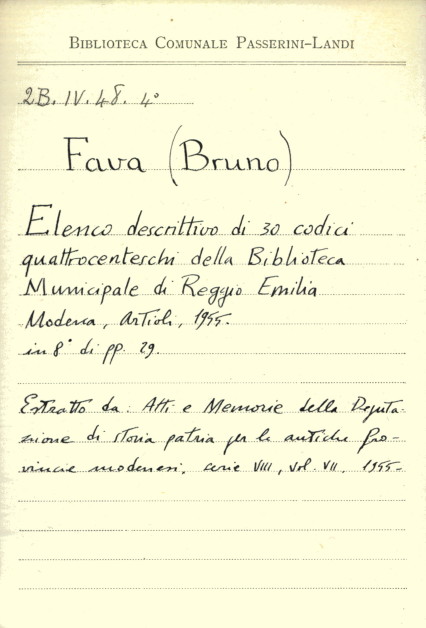 BIBLIOTECA COMUNALE PASSERINI-LANDI
2B. IV. 48. 4°
Fava (Bruno)
Elenco descrittivo di 30 codici
quattrocenteschi della Biblioteca
Municipale di Reggio Emilia
Modena, Artioli, 1955.
in 8° di pp. 29.
Estratto da: Atti e Memorie della Deputa-
zione di storia patria per le antiche pro-
vincie modenesi, serie VIII, vol. VII, 1955-